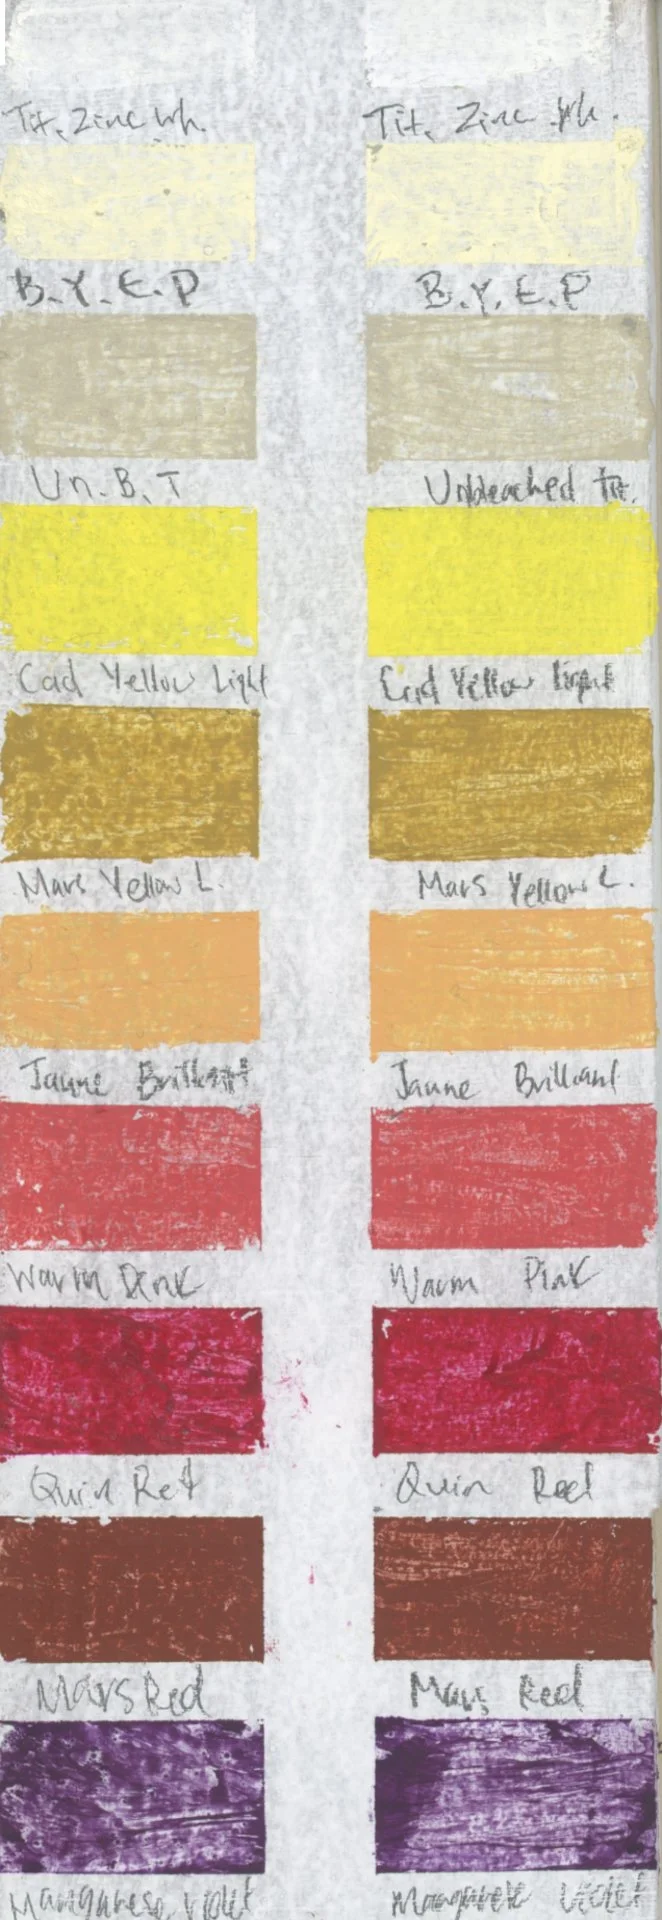 Tit. Zinc Wh. Tit. Zinc Wh.
B.Y.E.P B.Y.E.P
Un.B.T Unbleached Tit.
Cad Yellow Light Cad Yellow Light
Mars Yellow L. Mars Yellow L.
Jaune Brilliant Jaune Brilliant
Warm Pink Warm Pink
Quin Red Quin Red
Mars Red Mars Red
Manganese Violet Manganese Violet